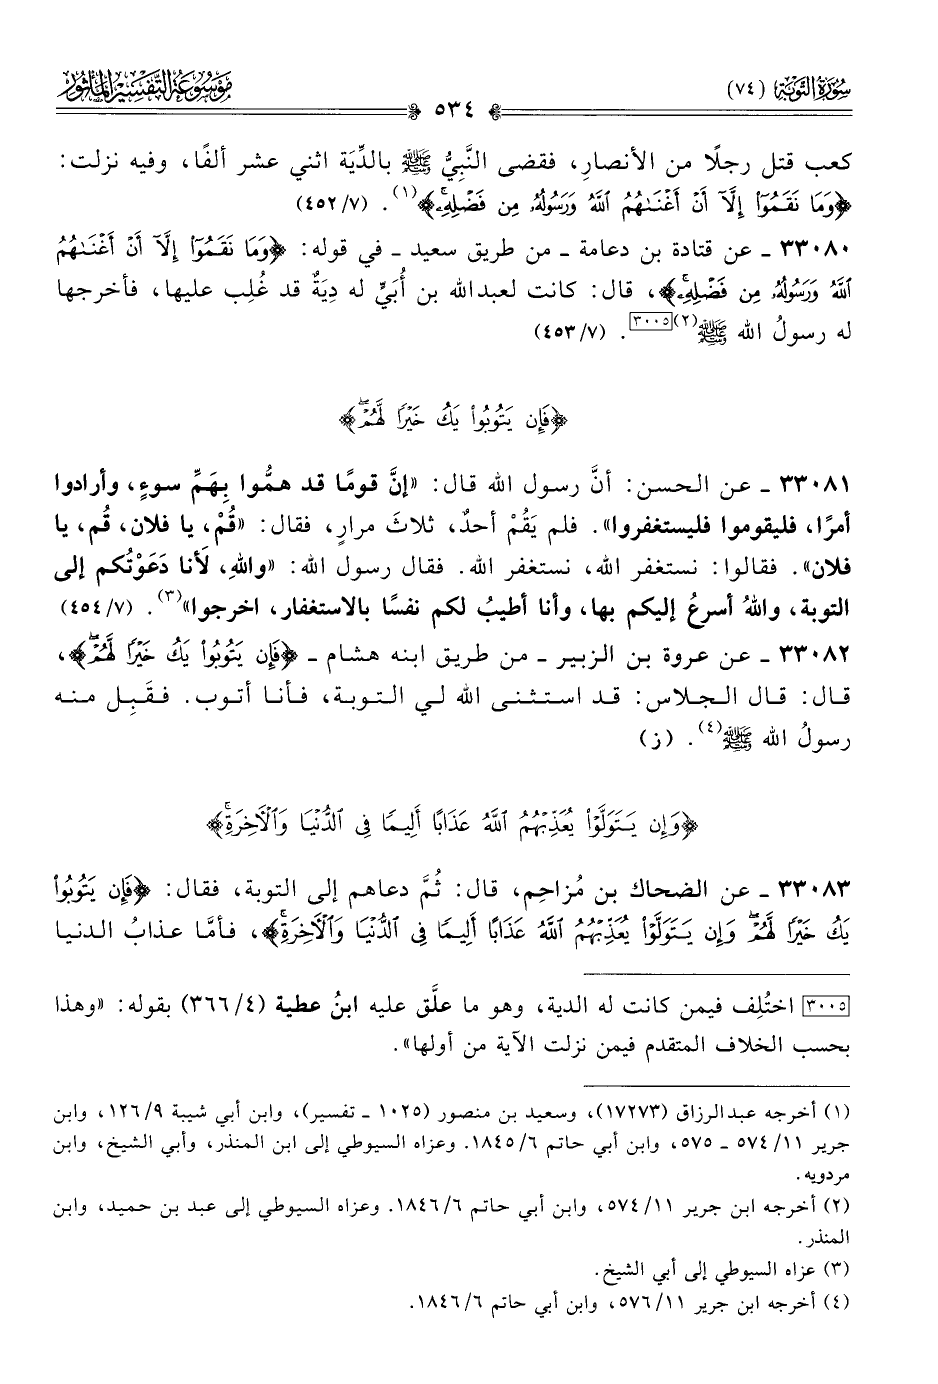 سُورَةُ التَّوْبَةِ (٧٤)
٥٣٤
مَوْسُوعَةُ التَّفْسِيرِ المَأْثُور
كعب قتل رجلًا من الأنصارِ، فقضى النَّبِيُّ ﷺ بالدِّيَة اثني عشر ألفًا، وفيه نزلت:
﴿وَمَا نَقَمُوٓا۟ إِلَّآ أَنْ أَغْنَىٰهُمُ ٱللَّهُ وَرَسُولُهُۥ مِن فَضْلِهِۦۚ﴾(١). (٧/ ٤٥٢)
٣٣٠٨٠ ـ عن قتادة بن دعامة ـ من طريق سعيد ـ في قوله: ﴿وَمَا نَقَمُوٓا۟ إِلَّآ أَنْ أَغْنَىٰهُمُ
ٱللَّهُ وَرَسُولُهُۥ مِن فَضْلِهِۦۚ﴾، قال: كانت لعبدالله بن أُبَيٍّ له دِيَةٌ قد غُلِب عليها، فأخرجها
له رسولُ الله ﷺ(٢)[٣٠٠٥]. (٧/ ٤٥٣)
﴿فَإِن يَتُوبُوا۟ يَكُ خَيْرًا لَّهُمْۖ﴾
٣٣٠٨١ ـ عن الحسن: أنَّ رسول الله قال: «إنَّ قومًا قد همُّوا بِهَمِّ سوءٍ، وأرادوا
أمرًا، فليقوموا فليستغفروا». فلم يَقُمْ أحدٌ، ثلاثَ مرارٍ، فقال: «قُمْ، يا فلان، قُم، يا
فلان». فقالوا: نستغفر الله، نستغفر الله. فقال رسول الله: «واللهِ، لَأنا دَعَوْتُكم إلى
التوبة، واللهُ أسرعُ إليكم بها، وأنا أطيبُ لكم نفسًا بالاستغفار، اخرجوا»(٣). (٧/ ٤٥٤)
٣٣٠٨٢ ـ عن عروة بن الزبير ـ من طريق ابنه هشام ـ ﴿فَإِن يَتُوبُوا۟ يَكُ خَيْرًا لَّهُمْۖ﴾،
قال: قال الجلاس: قد استثنى الله لي التوبة، فأنا أتوب. فقَبِل منه
رسولُ الله ﷺ(٤). (ز)
﴿وَإِن يَتَوَلَّوْا۟ يُعَذِّبْهُمُ ٱللَّهُ عَذَابًا أَلِيمًا فِى ٱلدُّنْيَا وَٱلْـَٔاخِرَةِۚ﴾
٣٣٠٨٣ ـ عن الضحاك بن مُزاحِم، قال: ثُمَّ دعاهم إلى التوبة، فقال: ﴿فَإِن يَتُوبُوا۟
يَكُ خَيْرًا لَّهُمْۖ وَإِن يَتَوَلَّوْا۟ يُعَذِّبْهُمُ ٱللَّهُ عَذَابًا أَلِيمًا فِى ٱلدُّنْيَا وَٱلْـَٔاخِرَةِۚ﴾، فأمَّا عذابُ الدنيا
[٣٠٠٥] اختُلِف فيمن كانت له الدية، وهو ما علَّق عليه ابنُ عطية (٤/ ٣٦٦) بقوله: «وهذا
بحسب الخلاف المتقدم فيمن نزلت الآية من أولها».
(١) أخرجه عبدالرزاق (١٧٢٧٣)، وسعيد بن منصور (١٠٢٥ ـ تفسير)، وابن أبي شيبة ٩/ ١٢٦، وابن
جرير ١١/ ٥٧٤ ـ ٥٧٥، وابن أبي حاتم ٦/ ١٨٤٥. وعزاه السيوطي إلى ابن المنذر، وأبي الشيخ، وابن
مردويه.
(٢) أخرجه ابن جرير ١١/ ٥٧٤، وابن أبي حاتم ٦/ ١٨٤٦. وعزاه السيوطي إلى عبد بن حميد، وابن
المنذر.
(٣) عزاه السيوطي إلى أبي الشيخ.
(٤) أخرجه ابن جرير ١١/ ٥٧٦، وابن أبي حاتم ٦/ ١٨٤٦.